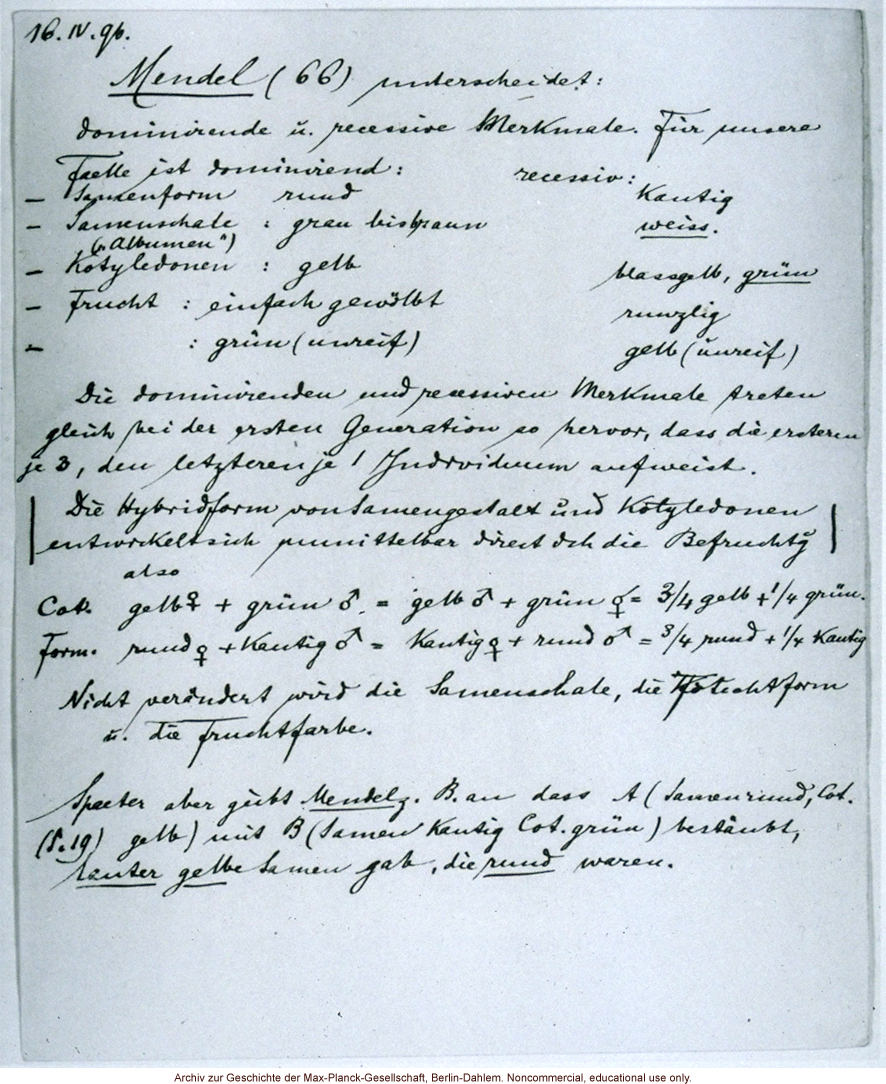 16. IV. 96.
Mendel (66) unterscheidet:
dominirende u. recessive Merkmale. Für unsere
Faelle ist dominirend: recessiv:
– Samenform rund Kantig
– Samenschale : grau bis braun weiss.
("Albumen")
– Kotyledonen : gelb blassgelb, grün
– Frucht : einfach gewölbt runzlig
– : grün (unreif) gelb (unreif)
Die dominirenden und recessiven Merkmale treten
gleich bei der ersten Generation so hervor, dass die ersteren
je 3, den letzteren je 1 Individuum aufweist.
Die Hybridform von Samengestalt und Kotyledonen
entwickelt sich unmittelbar direct dch die Befruchtg
also
Cot. gelb ♀ + grün ♂ = gelb ♂ + grün ♀ = 3/4 gelb + 1/4 grün.
Form. rund ♀ + Kantig ♂ = Kantig ♀ + rund ♂ = 3/4 rund + 1/4 Kantig
Nicht verändert wird die Samenschale, die
u. die Fruchtfarbe.
Spaeter aber giebt Mendel z. B. an dass A (Samen rund, Cot.
(S. 19) gelb) mit B (Samen Kantig Cot. grün) bestäubt,
lauter gelbe Samen gab, die rund waren.
Archiv zur Geschichte der Max-Planck-Gesellschaft, Berlin-Dahlem. Noncommercial, educational use only.